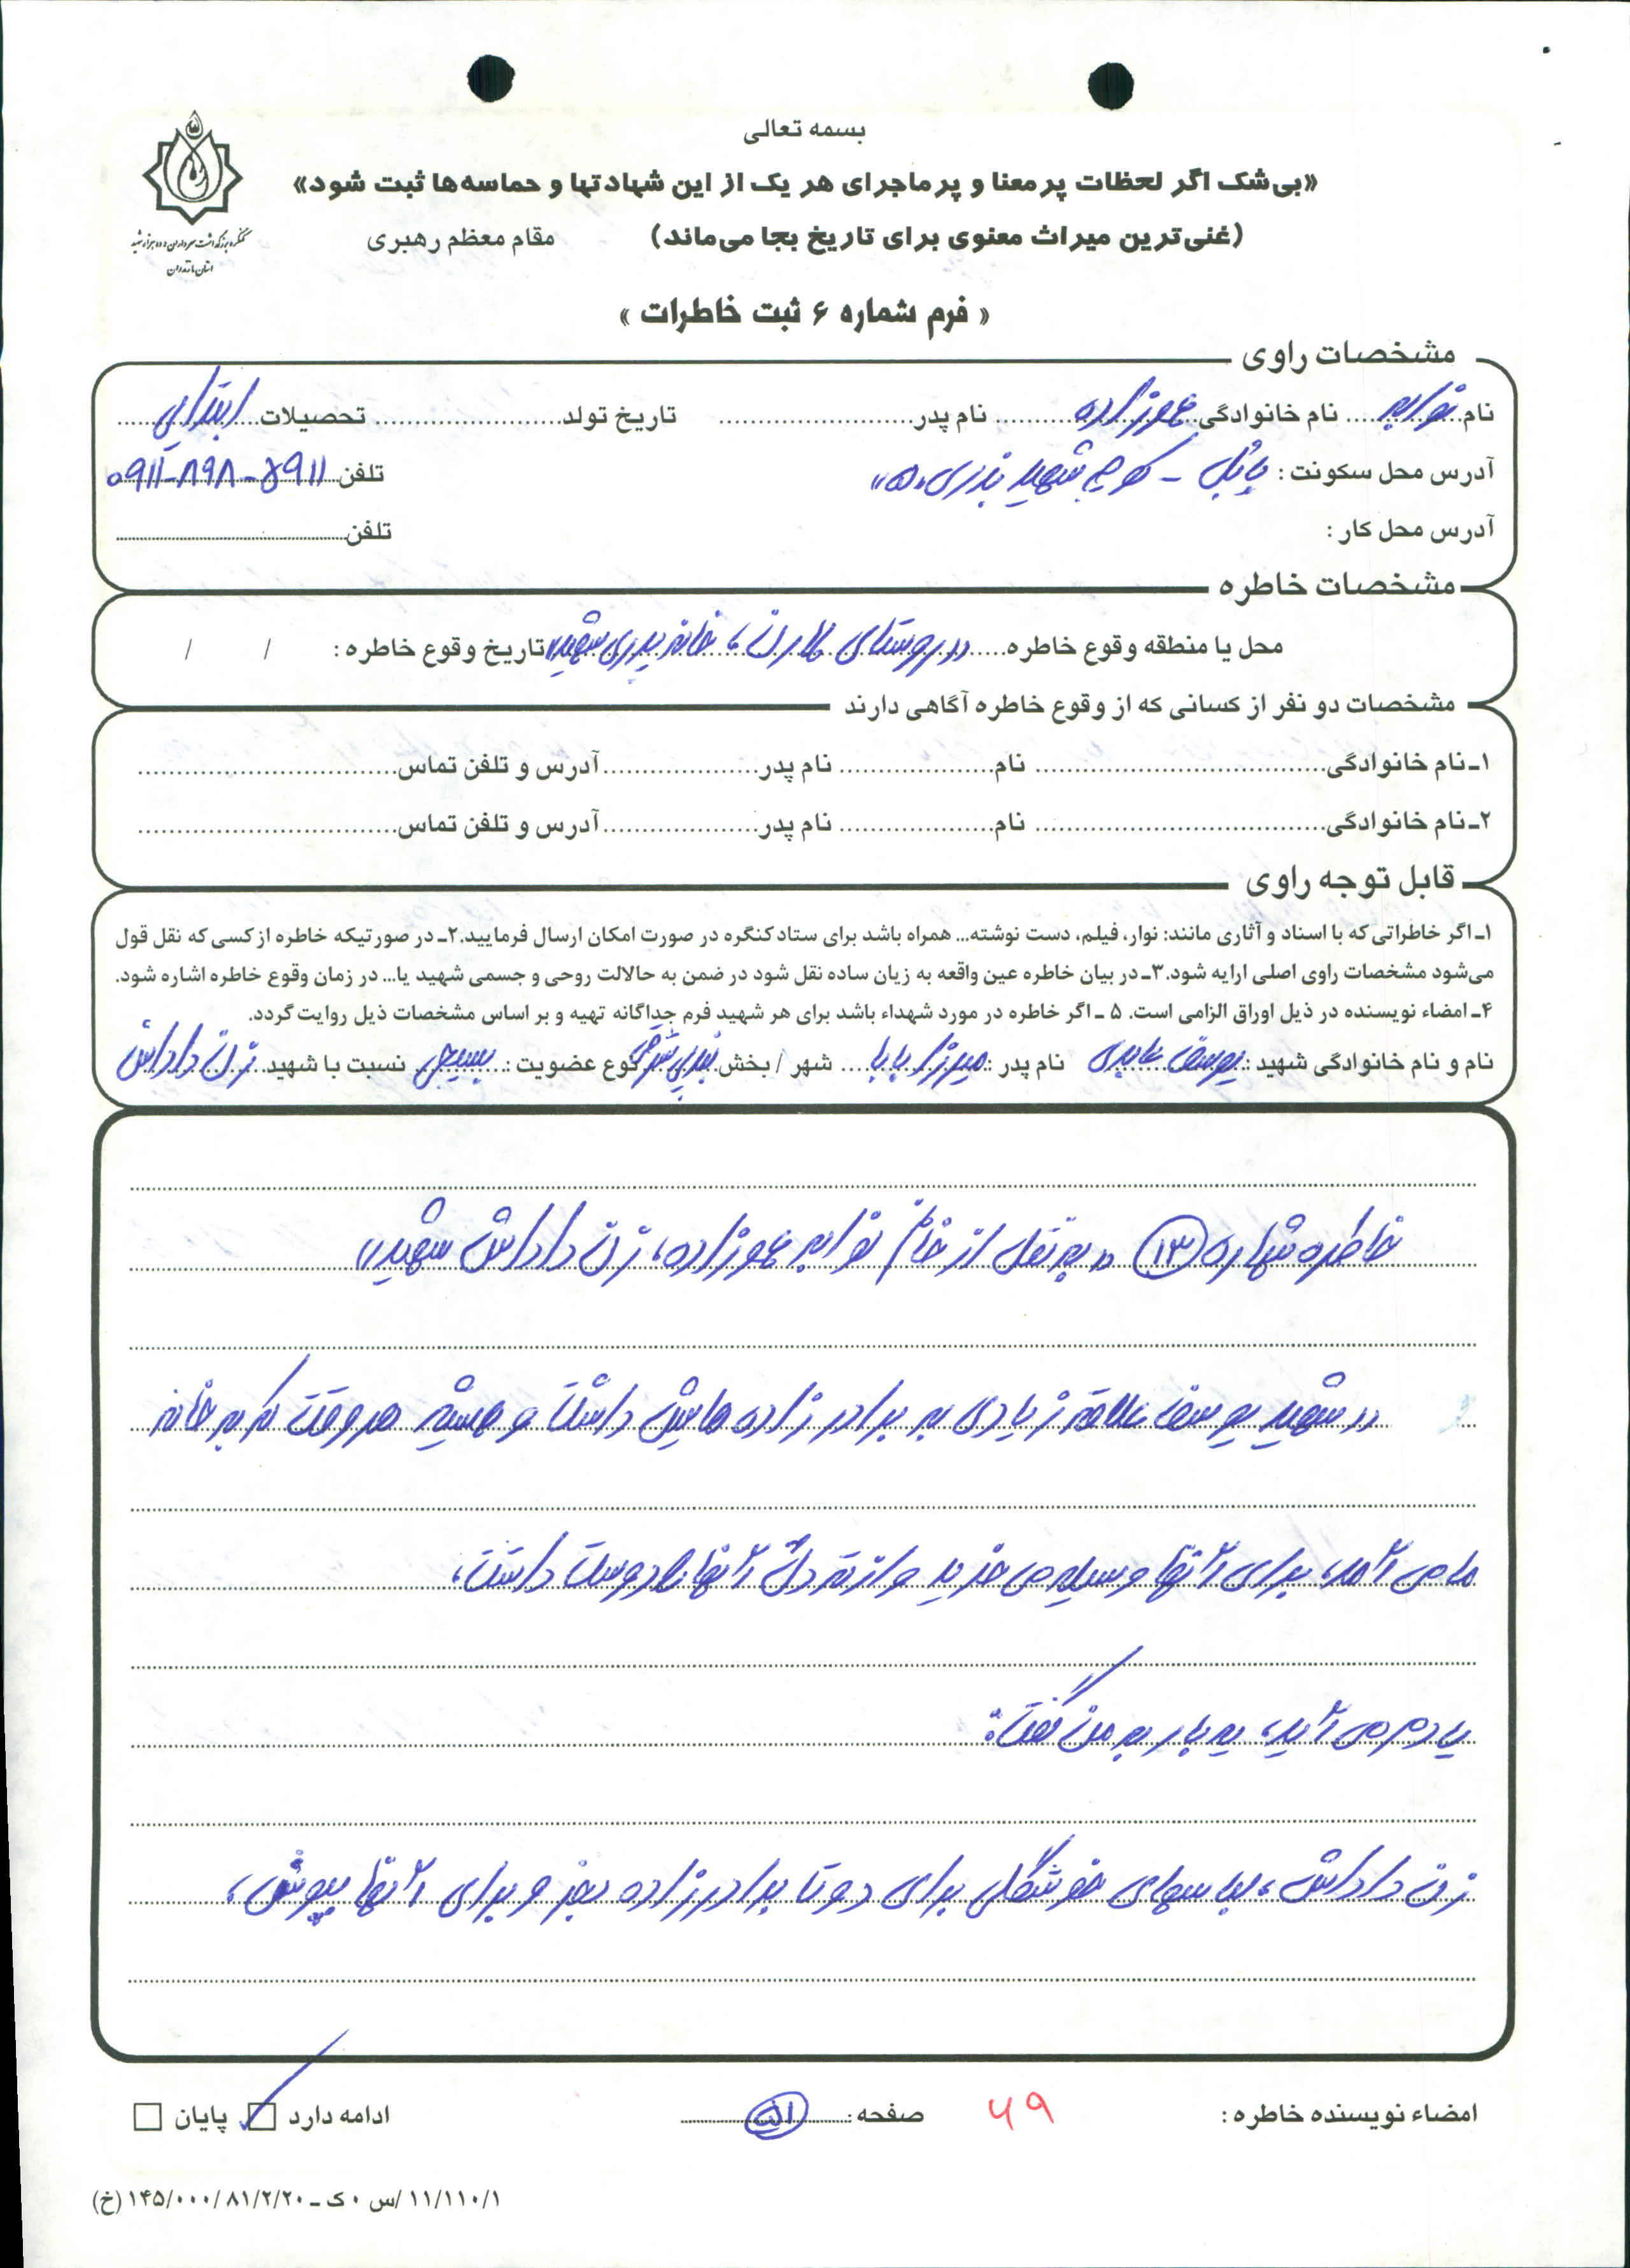 بسمه تعالی
«بی‌شک اگر لحظات پر معنا و پر ماجرای هر یک از این شهادتها و حماسه‌ها ثبت شود»
(غنی‌ترین میراث معنوی برای تاریخ بجا می‌ماند) مقام معظم رهبری
کنگره بزرگداشت سرداران و ده هزار شهید
استان مازندران
« فرم شماره ۶ ثبت خاطرات »
مشخصات راوی
نام ... نام خانوادگی عموزاده نام پدر ... تاریخ تولد ... تحصیلات ابتدایی
آدرس محل سکونت : بابل - کوچه شهید تلفن ۰۹۱۱-۸۹۸-۵۹۱۱
آدرس محل کار : تلفن ...
مشخصات خاطره
محل یا منطقه وقوع خاطره در روستای خانه پدری شهید تاریخ وقوع خاطره : / /
مشخصات دو نفر از کسانی که از وقوع خاطره آگاهی دارند
۱ـ نام خانوادگی ... نام ... نام پدر ... آدرس و تلفن تماس ...
۲ـ نام خانوادگی ... نام ... نام پدر ... آدرس و تلفن تماس ...
قابل توجه راوی
۱ـ اگر خاطراتی که با اسناد و آثاری مانند: نوار، فیلم، دست نوشته... همراه باشد برای ستاد کنگره در صورت امکان ارسال فرمایید.۲ـ در صورتیکه خاطره از کسی که نقل قول
می‌شود مشخصات راوی اصلی ارایه شود.۳ـ در بیان خاطره عین واقعه به زبان ساده نقل شود در ضمن به حالالت روحی و جسمی شهید یا... در زمان وقوع خاطره اشاره شود.
۴ـ امضاء نویسنده در ذیل اوراق الزامی است. ۵ ـ اگر خاطره در مورد شهداء باشد برای هر شهید فرم جداگانه تهیه و بر اساس مشخصات ذیل روایت گردد.
نام و نام خانوادگی شهید : یوسف عابدی نام پدر : میرزا بابا شهر / بخش بندپی شرقی نوع عضویت : بسیجی نسبت با شهید زن داداش
خاطره شماره (۱۳) « به نقل از خانم عموزاده، زن داداش شهید»
«شهید یوسف علاقه زیادی به برادر زاده هایش داشت و همیشه هر وقت که به خانه
ما می آمد، برای آنها وسیله می خرید و از ته دل آنها را دوست داشت،
یادم می آید، یه بار به من گفت:
زن داداش، لباسهای خوشگلی برای دو تا برادرزاده بخر و برای آنها بپوش،
امضاء نویسنده خاطره : ۶۹ صفحه : الف ادامه دارد پایان
۱۱/۱۱۰/۱ /س ۰ ک ـ ۸۱/۲/۲۰ /۱۴۵/۰۰۰ (خ)